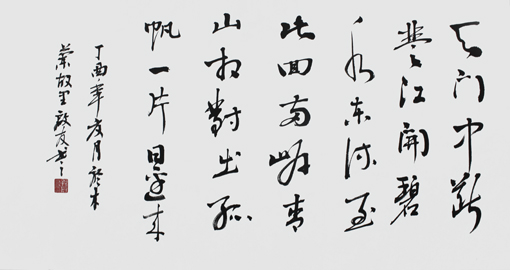 天门中断
楚江開碧
水东流至
此回两岸青
山相對出孤
帆一片日邊来
丁酉年夏月於木
蘭故里书